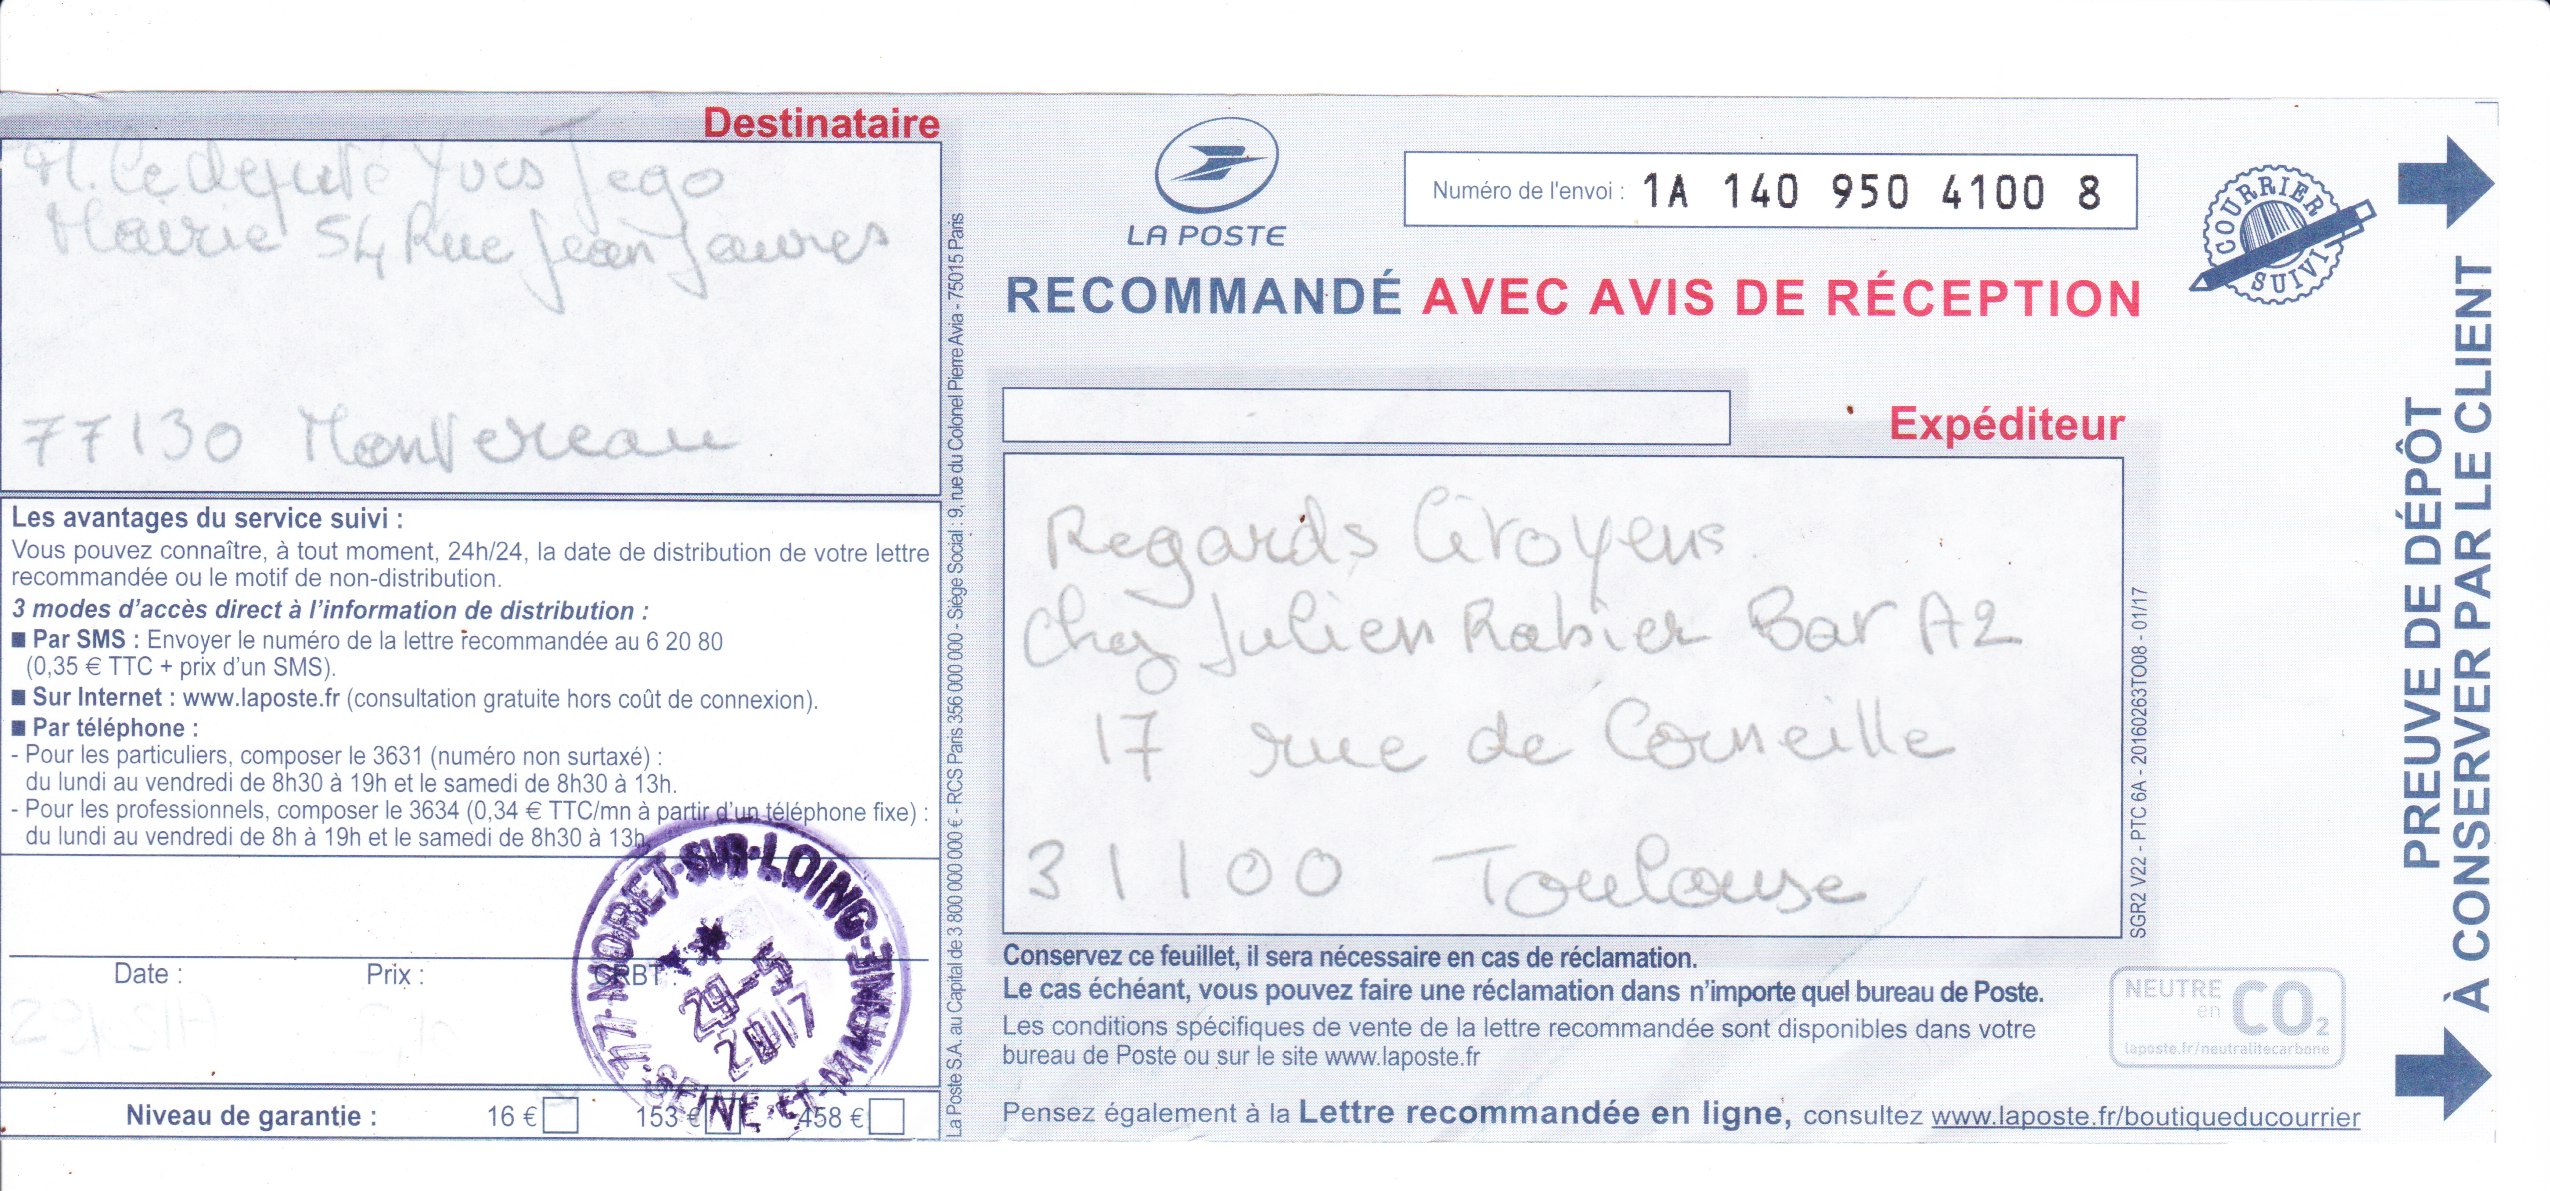 Destinataire
M. le député Yves Jego
Mairie 54 Rue Jean Jaures
77130 Montereau
Les avantages du service suivi :
Vous pouvez connaître, à tout moment, 24h/24, la date de distribution de votre lettre
recommandée ou le motif de non-distribution.
3 modes d'accès direct à l'information de distribution :
■ Par SMS : Envoyer le numéro de la lettre recommandée au 6 20 80
(0,35 € TTC + prix d'un SMS).
■ Sur Internet : www.laposte.fr (consultation gratuite hors coût de connexion).
■ Par téléphone :
- Pour les particuliers, composer le 3631 (numéro non surtaxé) :
du lundi au vendredi de 8h30 à 19h et le samedi de 8h30 à 13h.
- Pour les professionnels, composer le 3634 (0,34 € TTC/mn à partir d'un téléphone fixe) :
du lundi au vendredi de 8h à 19h et le samedi de 8h30 à 13h.
Date : Prix : CRBT :
77-MORET-SUR-LOING-SEINE-ET-MARNE
29-5
2017
Niveau de garantie : 16 € 153 € 458 €
La Poste S.A. au Capital de 3 800 000 000 € - RCS Paris 356 000 000 - Siège Social : 9, rue du Colonel Pierre Avia - 75015 Paris
LA POSTE
Numéro de l'envoi : 1A 140 950 4100 8
COURRIER SUIVI
RECOMMANDÉ AVEC AVIS DE RÉCEPTION
Expéditeur
Regards Citoyens
Chez Julien Rabier Bat A2
17 rue de Corneille
31100 Toulouse
SGR2 V22 - PTC 6A - 20160263TO08 - 01/17
Conservez ce feuillet, il sera nécessaire en cas de réclamation.
Le cas échéant, vous pouvez faire une réclamation dans n'importe quel bureau de Poste.
Les conditions spécifiques de vente de la lettre recommandée sont disponibles dans votre
bureau de Poste ou sur le site www.laposte.fr
NEUTRE
en
CO2
laposte.fr/neutralitecarbone
Pensez également à la Lettre recommandée en ligne, consultez www.laposte.fr/boutiqueducourrier
PREUVE DE DÉPÔT
À CONSERVER PAR LE CLIENT